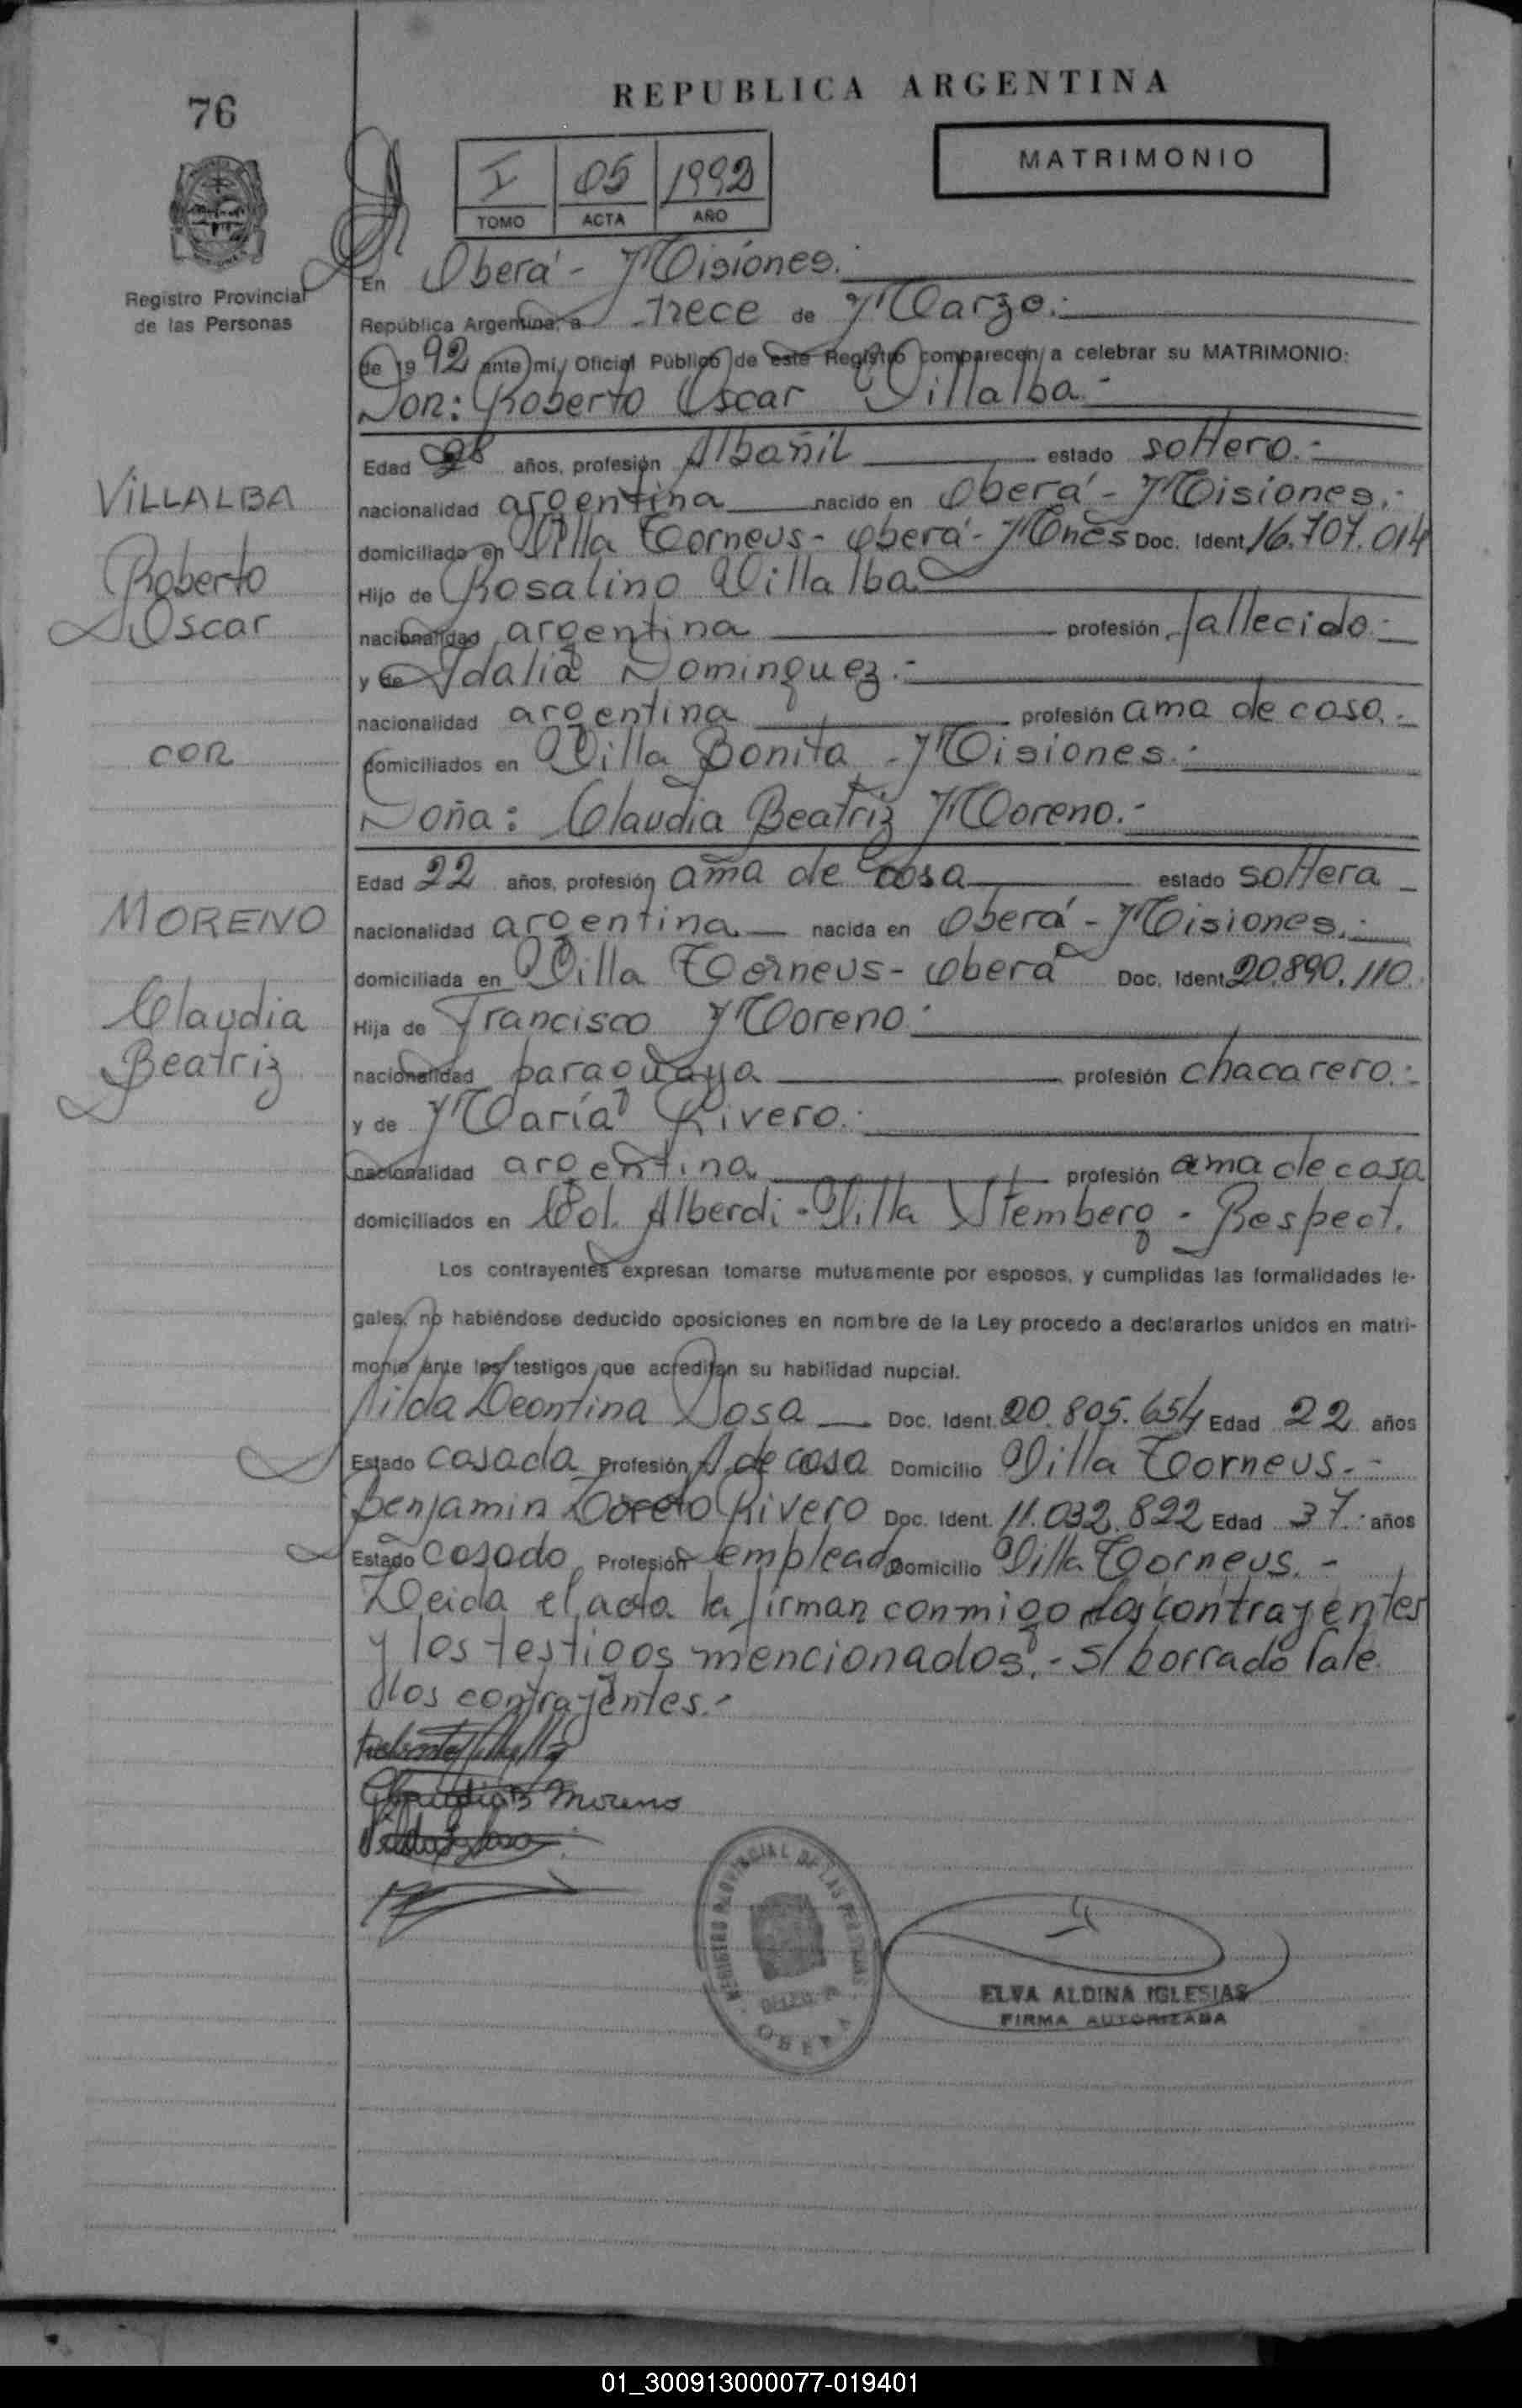 REPUBLICA ARGENTINA
76
MATRIMONIO
I 05 1992
TOMO ACTA AÑO
Registro Provincial
de las Personas
En Oberá - Misiones.
República Argentina, a trece de Marzo.-
de 19 92 ante mi, Oficial Público de este Registro comparecen a celebrar su MATRIMONIO:
Don: Roberto Oscar Villalba.-
Edad 28 años, profesión Albañil estado soltero.-
VILLALBA
nacionalidad argentina nacido en Oberá - Misiones.-
domiciliado en Villa Torneus - Oberá - Mnes Doc. Ident. 16.707.014
Roberto
Hijo de Rosalino Villalba
Oscar
nacionalidad argentina profesión fallecido.-
y de Idalia Dominguez.-
nacionalidad argentina profesión ama de casa.-
con
domiciliados en Villa Bonita - Misiones.-
Doña: Claudia Beatriz Moreno.-
Edad 22 años, profesión ama de casa estado soltera
MORENO
nacionalidad argentina nacida en Oberá - Misiones.-
domiciliada en Villa Torneus - Oberá Doc. Ident. 20.890.110.
Claudia
Hija de Francisco Moreno.-
Beatriz
nacionalidad paraguaya profesión chacarero.-
y de María Rivero.-
nacionalidad argentina profesión ama de casa
domiciliados en Col. Alberdi - Villa Stemberg - Respect.
Los contrayentes expresan tomarse mutuamente por esposos, y cumplidas las formalidades le-
gales, no habiéndose deducido oposiciones en nombre de la Ley procedo a declararlos unidos en matri-
monio ante los testigos que acreditan su habilidad nupcial.
Nilda Leontina Sosa Doc. Ident. 20.805.654 Edad 22 años
Estado casada Profesión A. de casa Domicilio Villa Torneus.-
Benjamin Loreto Rivero Doc. Ident. 11.032.822 Edad 37 años
Estado casado Profesión empleado Domicilio Villa Torneus.-
Leida el acta la firman conmigo los contrayentes
y los testigos mencionados.- S/ borrado Vale.
los contrayentes.-
Claudia B Moreno
REGISTRO PROVINCIAL DE LAS PERSONAS
OBERA
ELVA ALDINA IGLESIAS
FIRMA AUTORIZADA
01_300913000077-019401